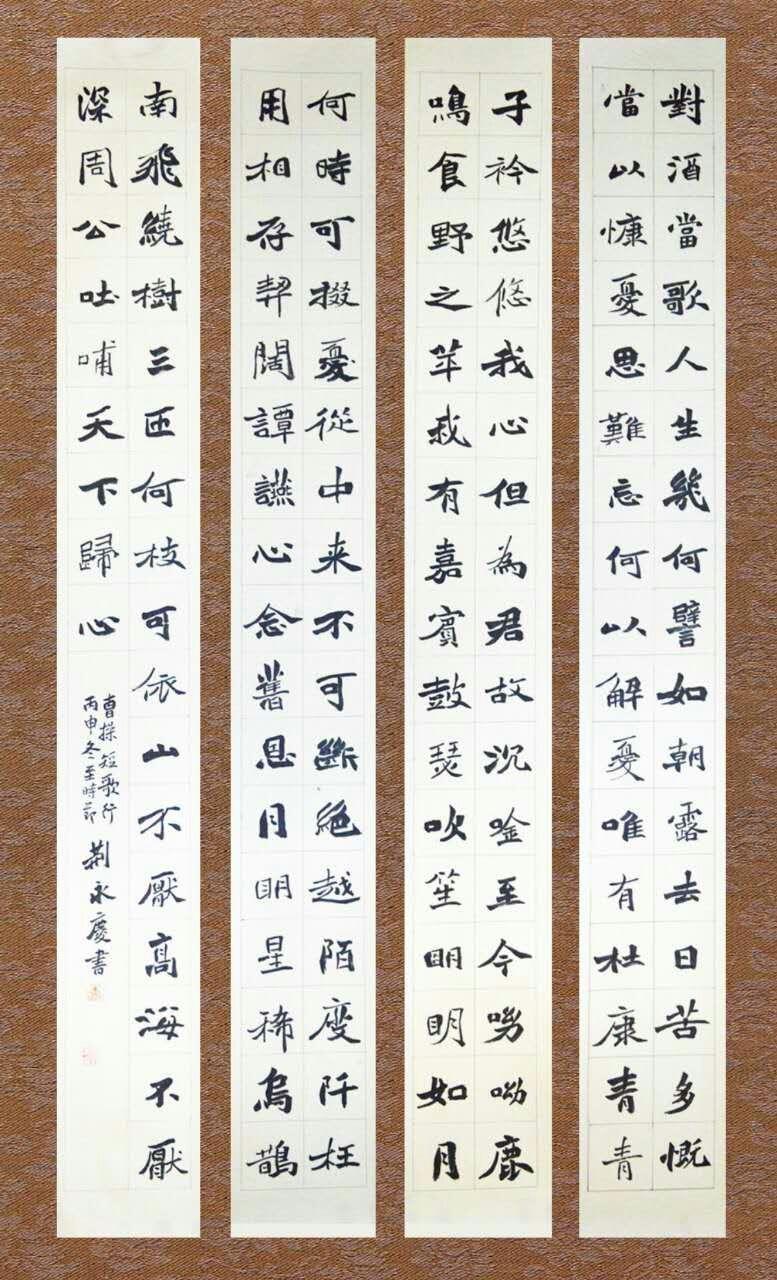 對酒當歌人生幾何譬如朝露去日苦多慨
當以慷憂思難忘何以解憂唯有杜康青青
子衿悠悠我心但為君故沉唫至今呦呦鹿
鳴食野之苹我有嘉賓鼓瑟吹笙明明如月
何時可掇憂從中来不可斷絕越陌度阡枉
用相存契闊譚讌心念舊恩月明星稀烏鵲
南飛繞樹三匝何枝可依山不厭高海不厭
深周公吐哺天下歸心
曹操短歌行
丙申冬至時節
荆永慶書